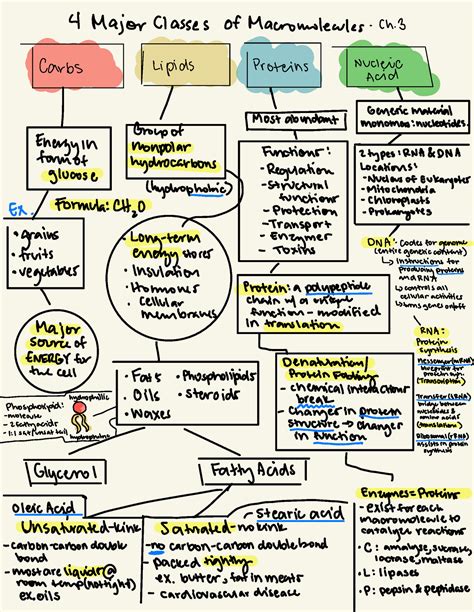 4 Major Classes of Macromolecules - Ch.3
Carbs
Lipids
Proteins
Nucleic
Acid
Energy in
form of
glucose
Ex.
Formula: CH2O
• grains
• fruits
• vegetables
Major
source of
ENERGY for
the cell
Group of
nonpolar
hydrocarbons
(hydrophobic)
• Long-term
energy stores
• Insulation
• Hormones
• Cellular
membranes
• Fats
• Oils
• Waxes
• Phospholipids
• steroids
Phospholipid:
2 fatty acids
hydrophilic
hydrophobic
Glycerol
Fatty Acids
Oleic Acid
Unsaturated-kink
-carbon-carbon double
bond
-most are liquids@
room temp (not tight)
ex. oils
Stearic acid
Saturated-no kink
-no carbon-carbon double bond
- packed tightly
ex. butter, fat in meats
- cardiovascular disease
Most abundant
Functions:
- Regulation
- Structural
functions
- Protection
- Transport
- Enzymes
- Toxins
Protein: a polypeptide
chain w/ a unique
function - modified
in translation
Denaturation/
Protein Folding
- chemical interactions
break
- Changes in protein
structure → changes
in function
Generic Material
monomos: nucleotides.
2 types: RNA & DNA
Locations:
- Nucleus of Eukaryotes
- Mitochondria
- Chloroplasts
- Prokaryotes
DNA: Codes for genome
(entire genetic content)
↳ instructions for
producing proteins
and RNA
↳ controls all
cellular activities
↳ turns genes on/off
RNA:
Protein
synthesis
Messenger (mRNA)
blueprint for
protein syn.
(Transcription)
Transfer (tRNA)
bridge between
amino acids
(translation)
Ribosomal (rRNA)
assists in protein
synthesis
Enzymes = Proteins
- exist for each
macromolecule to
catalyze reactions
• C: amylase, sucrase,
lactase, maltase
• L: lipases
• P: pepsin & peptidase